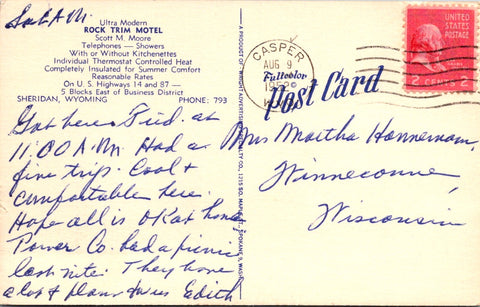 Sat. A.M.
Ultra Modern
ROCK TRIM MOTEL
Scott M. Moore
Telephones — Showers
With or Without Kitchenettes
Individual Thermostat Controlled Heat
Completely Insulated for Summer Comfort
Reasonable Rates
On U. S. Highways 14 and 87 —
5 Blocks East of Business District
SHERIDAN, WYOMING PHONE: 793
Got here Frid. at
11:00 A.M. Had a
fine trip. Cool &
comfortable here.
Hope all is OK at home
Power Co. had a picnic
last nite. They have
a lot of
Edith
A PRODUCT OF WRIGHT ADVERTISING SPECIALTY CO. 1215 SO. SPOKANE 3, WASH.
CASPER
AUG 9
Fullcolor
Post Card
UNITED
STATES
POSTAGE
2 CENTS 2
Mrs Martha Hanneman,
Winneconne,
Wisconsin